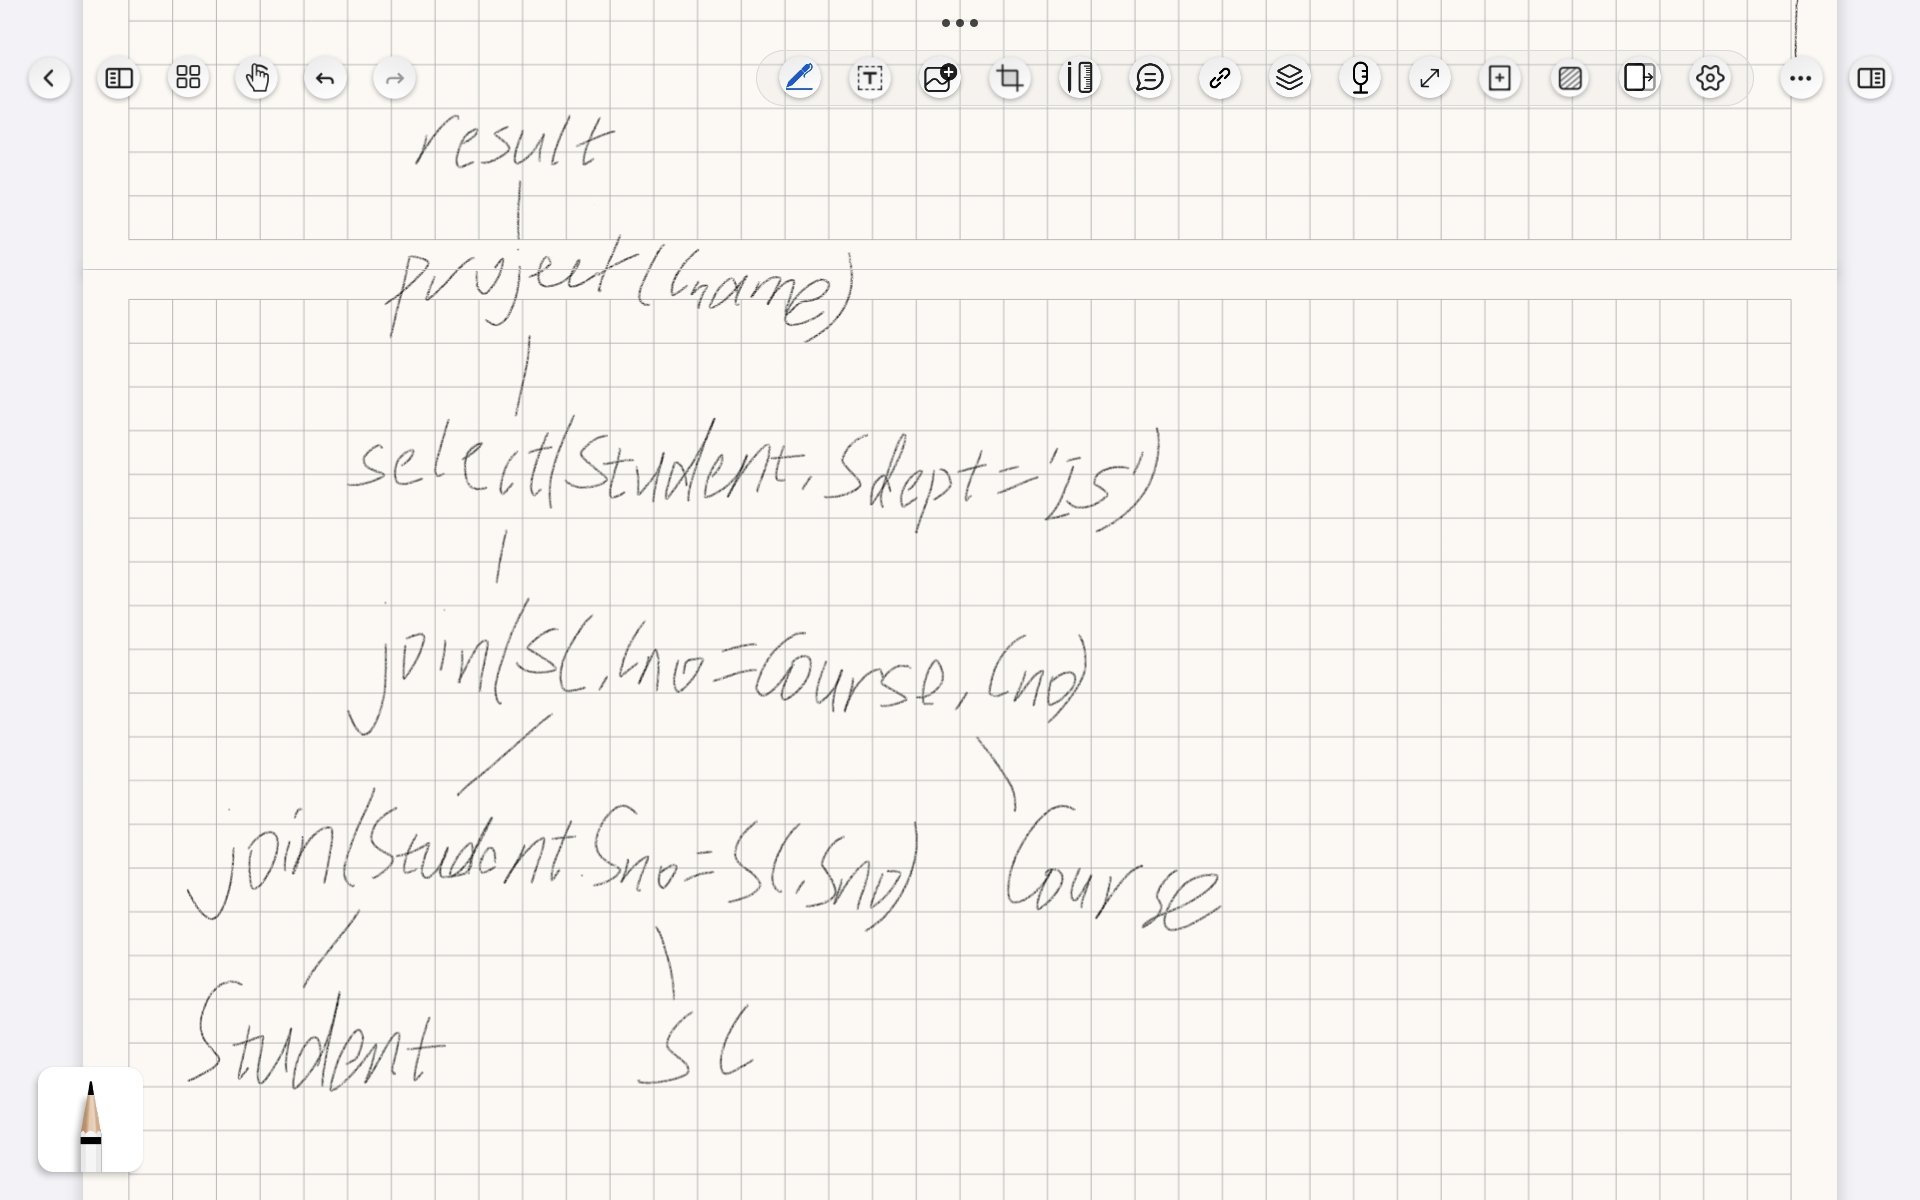 result
project(Cname)
select(Student.Sdept='IS')
join(SC.Cno=Course.Cno)
join(Student.Sno=SC.Sno) Course
Student SC